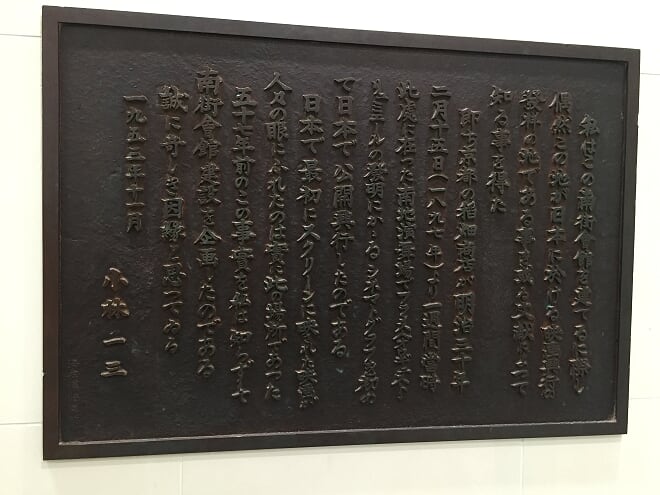 私はこの南街會館を建てるに際し
偶然この地が日本に於ける映画興行
發祥の地である事を或る文献に一て
知る事を得た
即ち京都の稲畑商店が明治三十年
二月十五日(一八九七年)より一週間當時
此處に在つた南地演舞場でフランス
リュミエールの發明にかゝるシネマトグラフを初め
て日本で公開興行したのである
日本で最初にスクリーンに映された映画が
人々の眼にふれたのは實に此の場所であつた
五十七年前のこの事實を 知らずして
南街會館建設を企画したのである
誠に奇しき因縁と思つてゐる
一九五三年十二月
小林一三